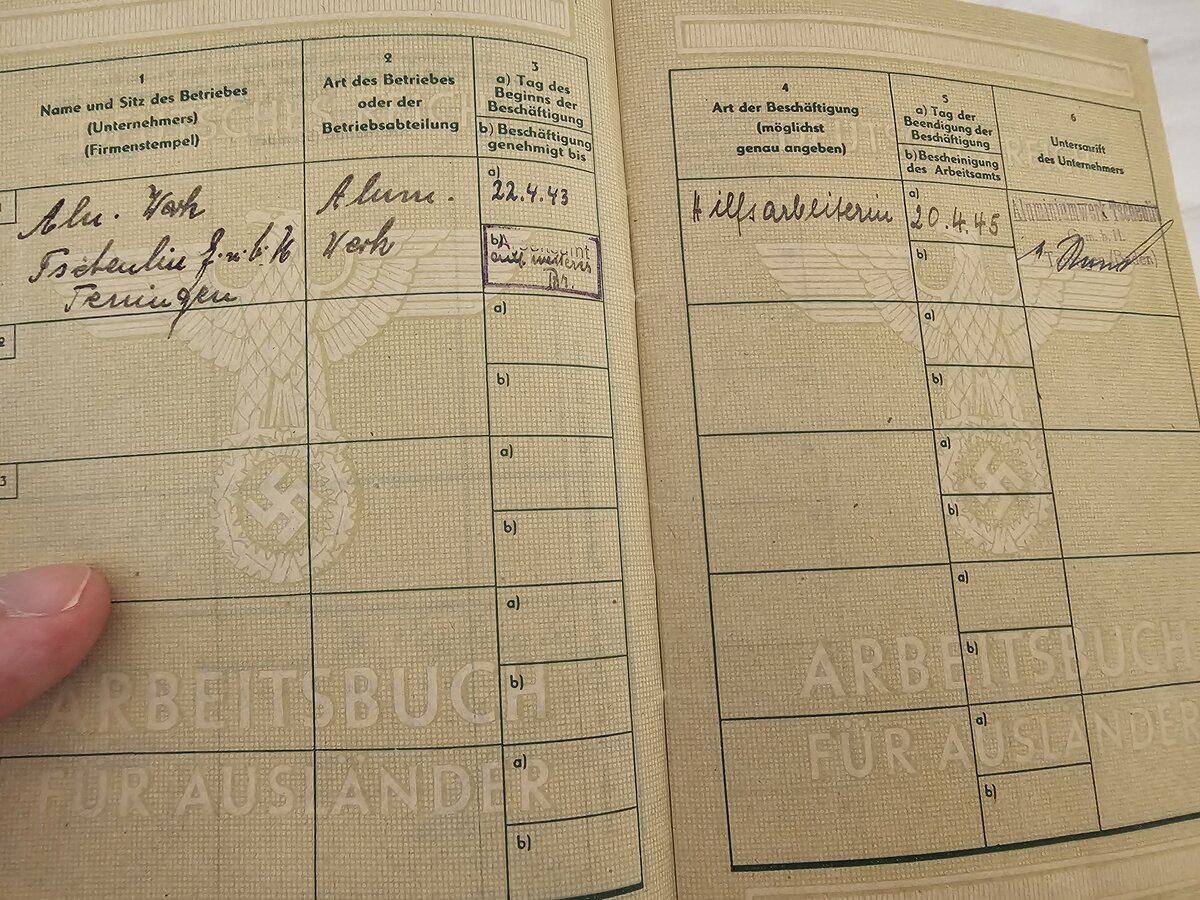 1
Name und Sitz des Betriebes
(Unternehmers)
(Firmenstempel)
2
Art des Betriebes
oder der
Betriebsabteilung
3
a) Tag des
Beginns der
Beschäftigung
b) Beschäftigung
genehmigt bis
4
Art der Beschäftigung
(möglichst
genau angeben)
5
a) Tag der
Beendigung der
Beschäftigung
b) Bescheinigung
des Arbeitsamts
6
Unterschrift
des Unternehmers
1
Alu. Werk
Tscheulin G.m.b.H
Teningen
Alum.
Werk
a)
22.4.43
b)
auf weiteres
Hilfsarbeiterin
a)
20.4.45
b)
Aluminiumwerk Tscheulin
G.m.b.H.
(Baden)
2
a)
b)
a)
b)
3
a)
b)
a)
b)
a)
b)
a)
b)
a)
b)
a)
b)
ARBEITSBUCH
FÜR AUSLÄNDER
ARBEITSBUCH
FÜR AUSLÄNDER